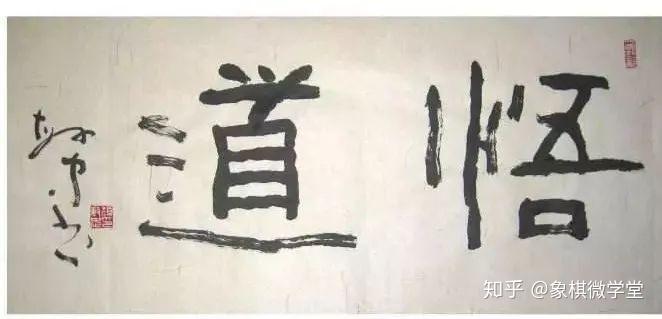 悟道
知乎 @象棋微学堂